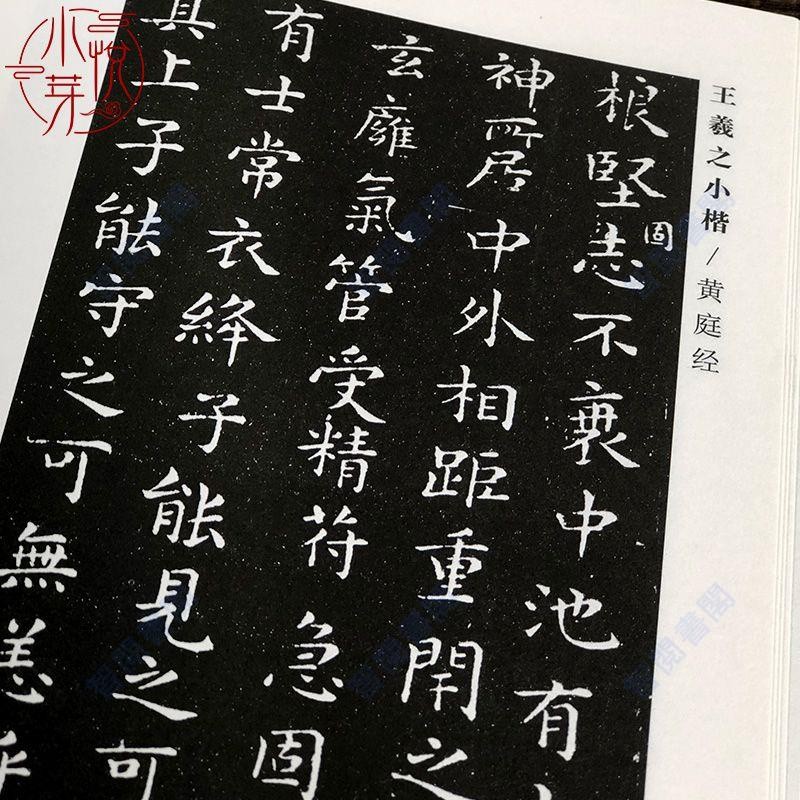 王羲之小楷/黄庭经
根堅志固不衰中池有
神所居中外相距重閇之
玄廱氣管受精符急固
有士常衣絳子能見之可
其上子能守之可
無恙
小芽
悦